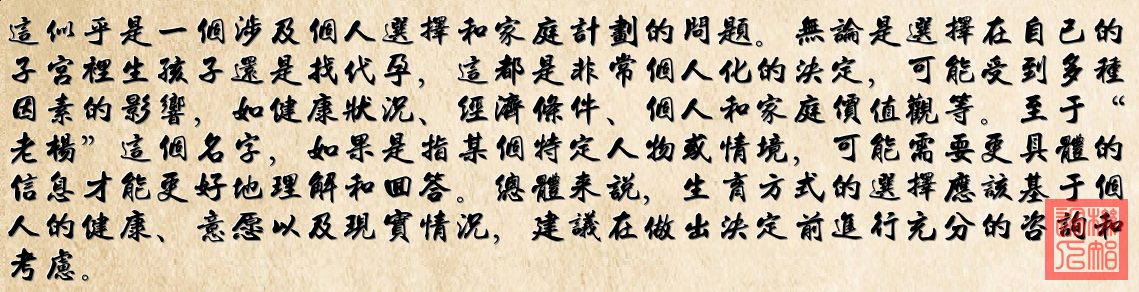 這似乎是一個涉及個人選擇和家庭計劃的問題。無論是選擇在自己的
子宮裡生孩子還是找代孕，這都是非常個人化的決定，可能受到多種
因素的影響，如健康狀況、經濟條件、個人和家庭價值觀等。至于“
老楊”這個名字，如果是指某個特定人物或情境，可能需要更具體的
信息才能更好地理解和回答。總體來說，生育方式的選擇應該基于個
人的健康、意愿以及現實情況，建議在做出決定前進行充分的咨詢和
考慮。